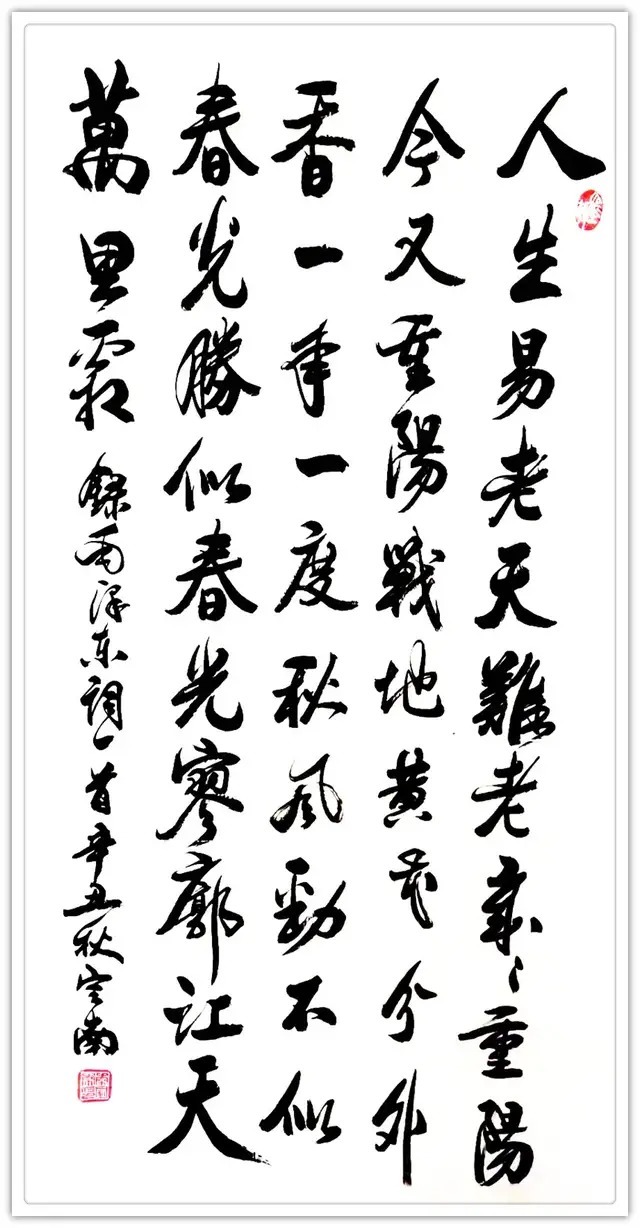 人生易老天難老歲々重陽
今又重陽戰地黃花分外
香一年一度秋風勁不似
春光勝似春光寥廓江天
萬里霜 錄毛澤東詞一首辛丑秋南